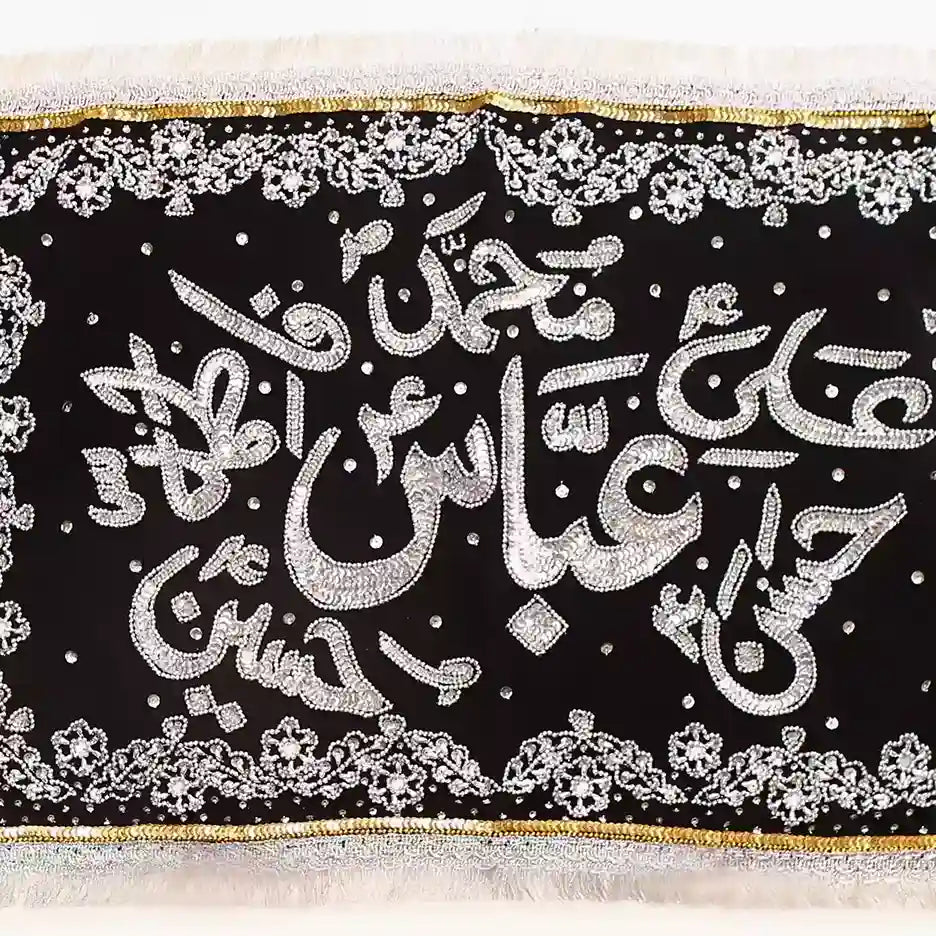 محمد ص
علی ع
فاطمه س
عباس ع
حسن ع
حسین ع